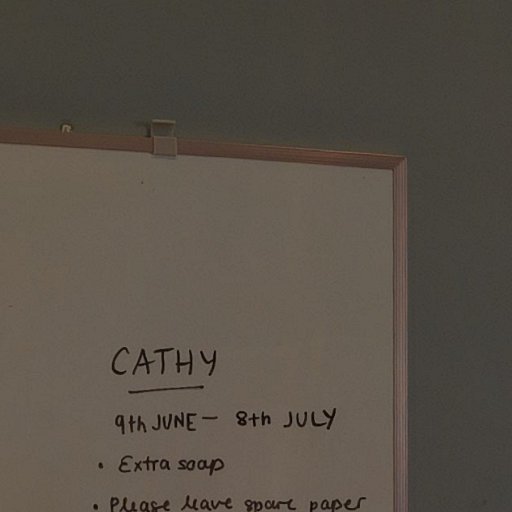 CATHY
9th JUNE - 8th JULY
• Extra soap
• Please leave spare paper